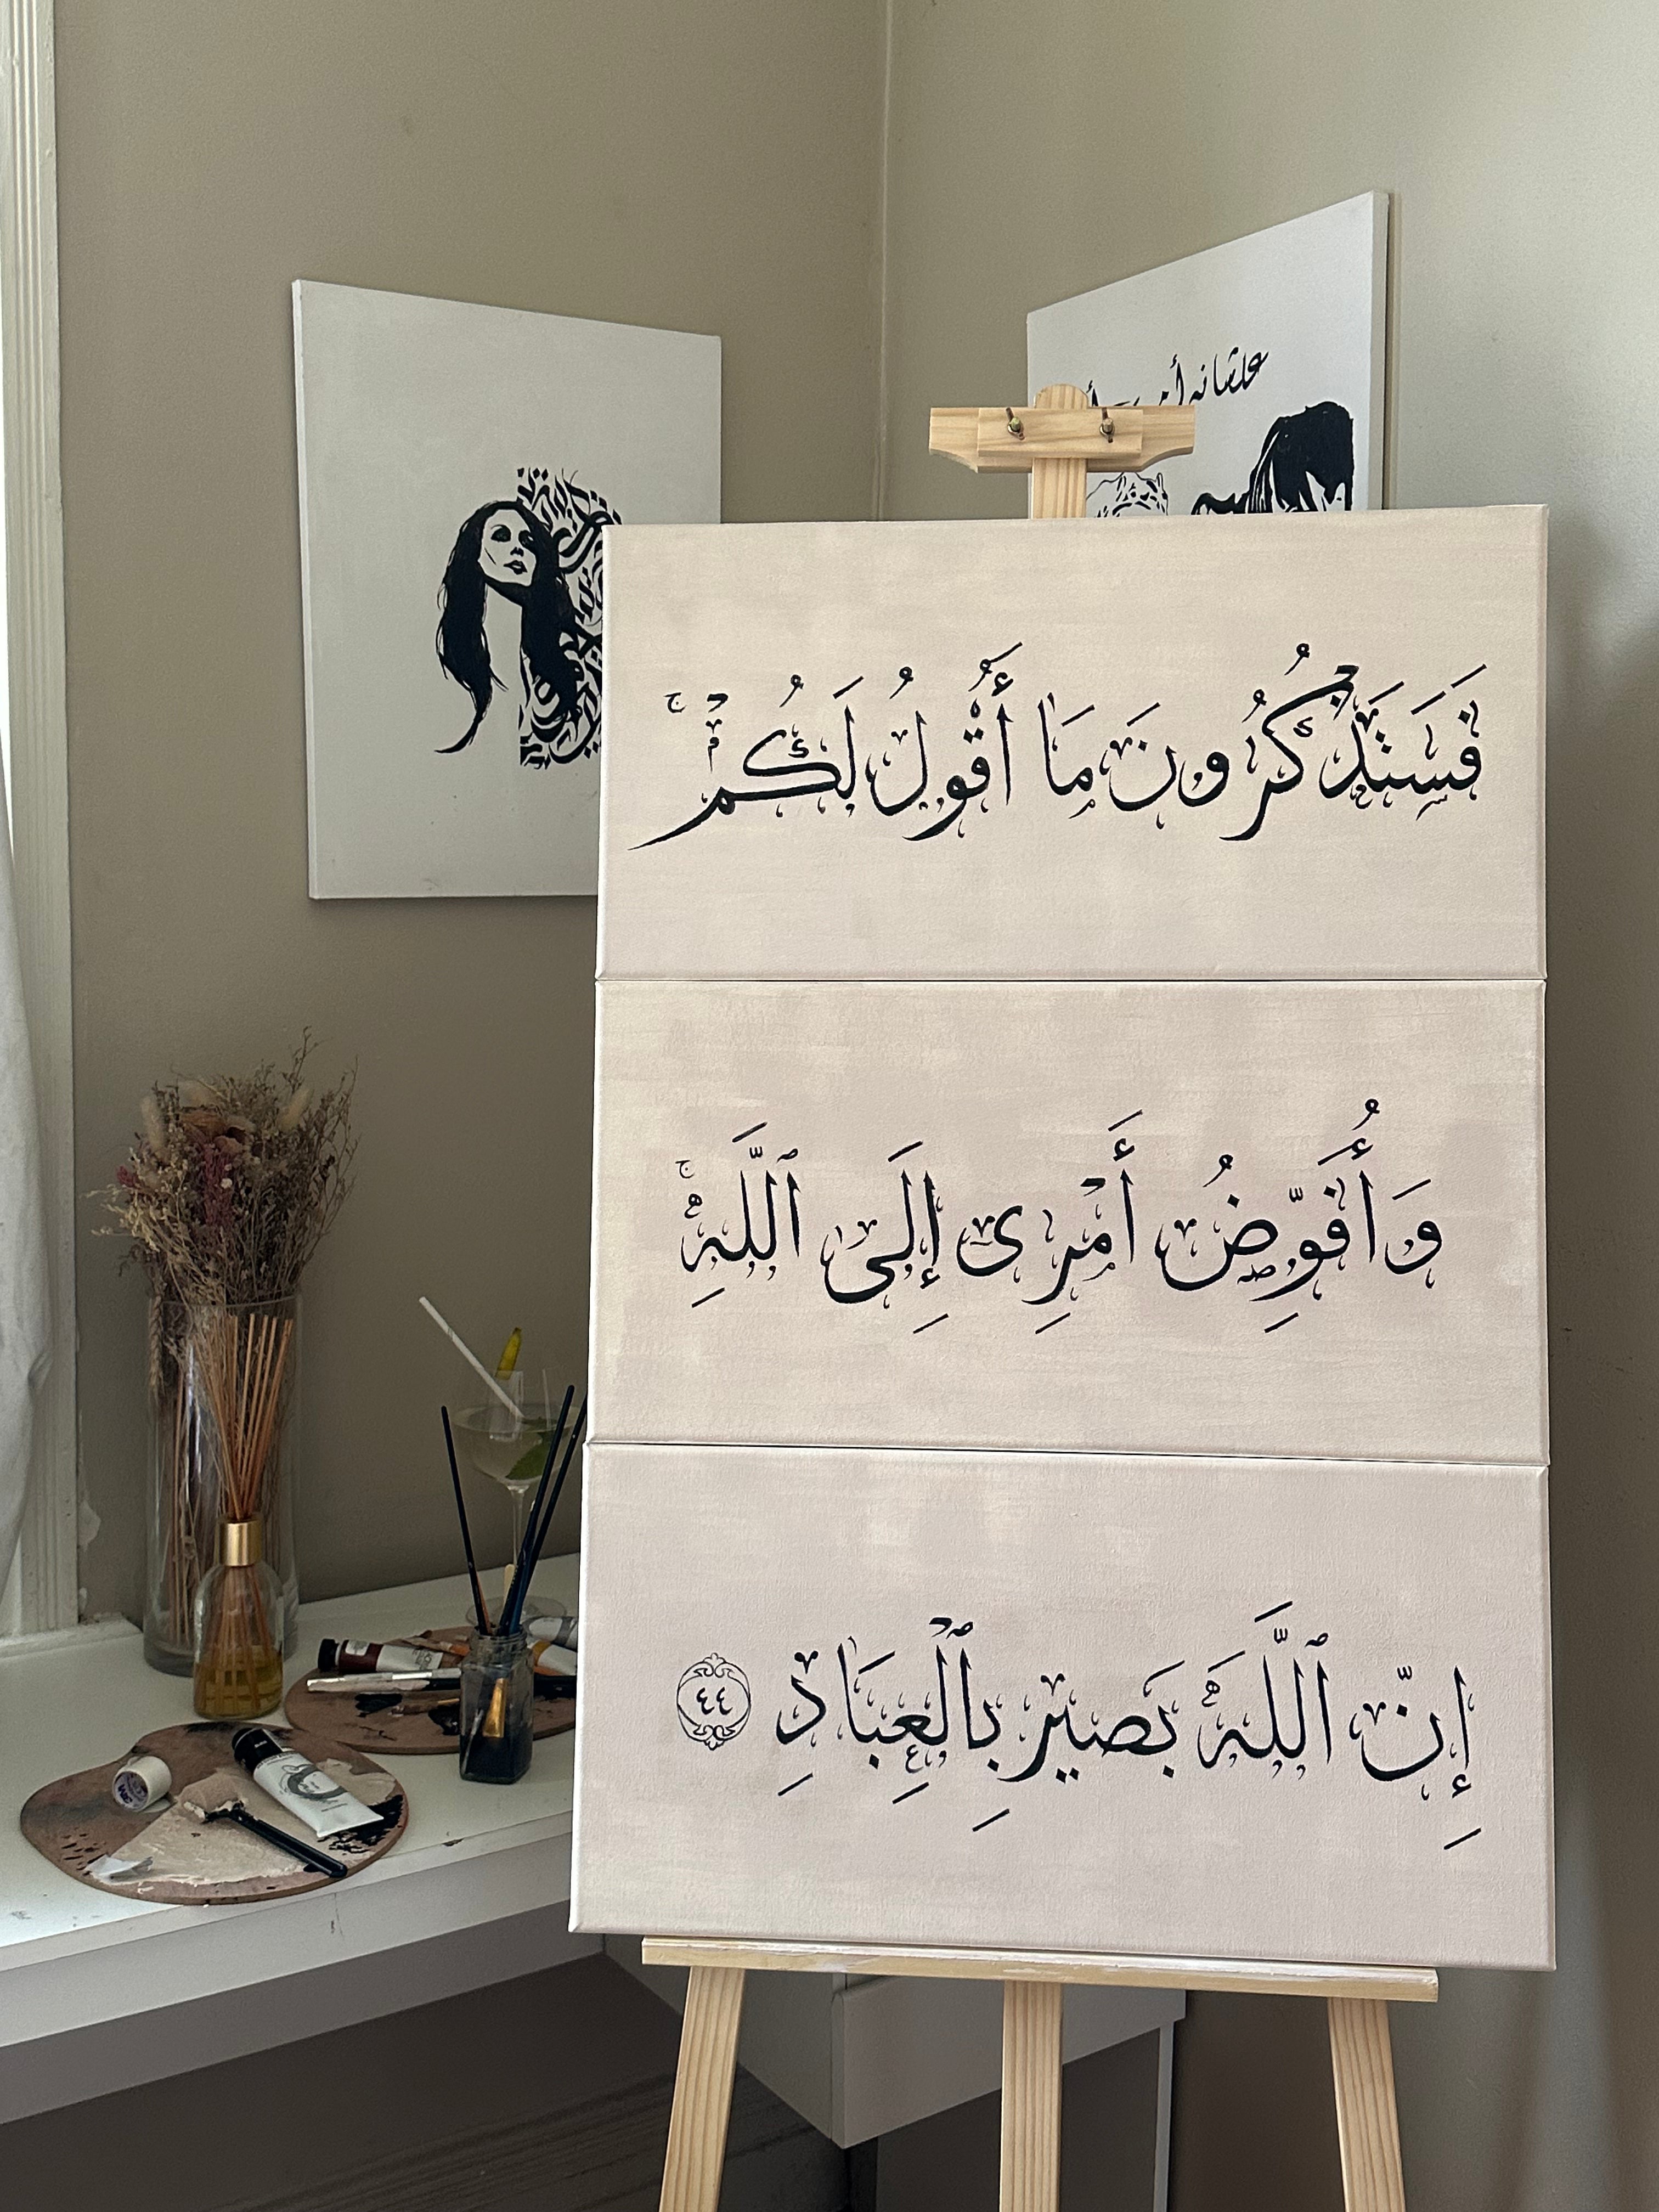 علشانه
فَسَتَذْكُرُونَ مَا أَقُولُ لَكُمْ ۚ
وَأُفَوِّضُ أَمْرِى إِلَى ٱللَّهِ ۚ
إِنّ ٱللَّهَ بَصير بِٱلْعِبَادِ ٤٤